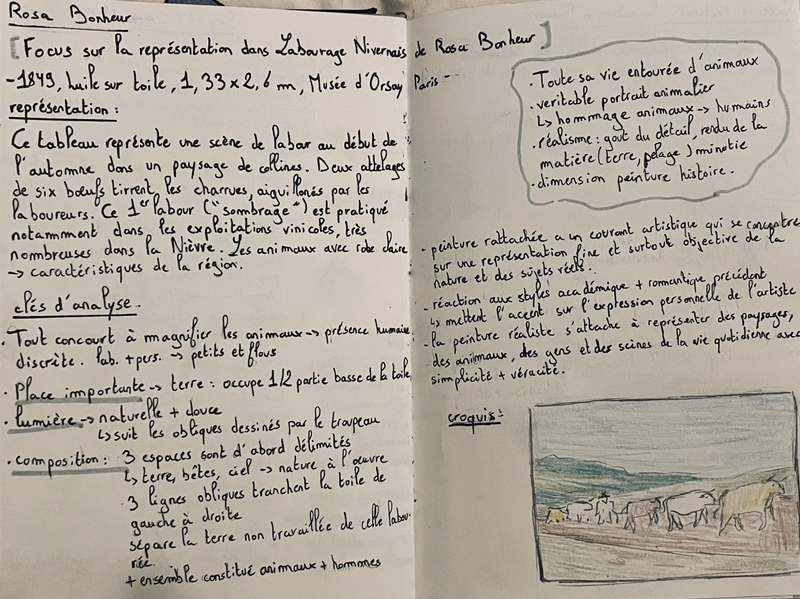 Rosa Bonheur
[Focus sur la représentation dans Labourage Nivernais de Rosa Bonheur]
-1849, huile sur toile, 1,33 x 2,6 m, Musée d'Orsay Paris -
représentation :
Ce tableau représente une scène de labour au début de
l'automne dans un paysage de collines. Deux attelages
de six bœufs tirrent les charrues, aiguillonés par les
laboureurs. Ce 1er labour ("sombrage") est pratiqué
notammment dans les exploitations vinicoles, très
nombreuses dans la Nièvre. Les animaux avec robe claire
→ caractéristiques de la région.
clés d'analyse.
• Tout concourt à magnifier les animaux → présence humaine
discrète. lab. + pers. → petits et flous
• Place importante → terre : occupe 1/2 partie basse de la toile
• lumière → naturelle + douce
↳ suit les obliques dessinés par le troupeau
• composition : 3 espaces sont d'abord délimités
↳ terre, bêtes, ciel → nature à l'oeuvre
3 lignes obliques tranchent la toile de
gauche à droite
sépare la terre non travaillée de celle labou-
rée.
+ ensemble constitué animaux + hommes
• Toute sa vie entourée d'animaux
• veritable portrait animalier
↳ hommmage animaux → humains
• réalisme : gout du détail, rendu de la
matière (terre, pelage) minutie
• dimension peinture histoire.
- peinture rattachée a un courant artistique qui se concentre
sur une representation fine et surtout objective de la
nature et des sujets réels.
- réaction aux styles académique + romantique précédent
↳ mettent l'accent sur l'expression personnelle de l'artiste
- la peinture réaliste s'attache à représenter des paysages,
des animaux, des gens et des scènes de la vie quotidienne avec
simplicité + véracité.
croquis :